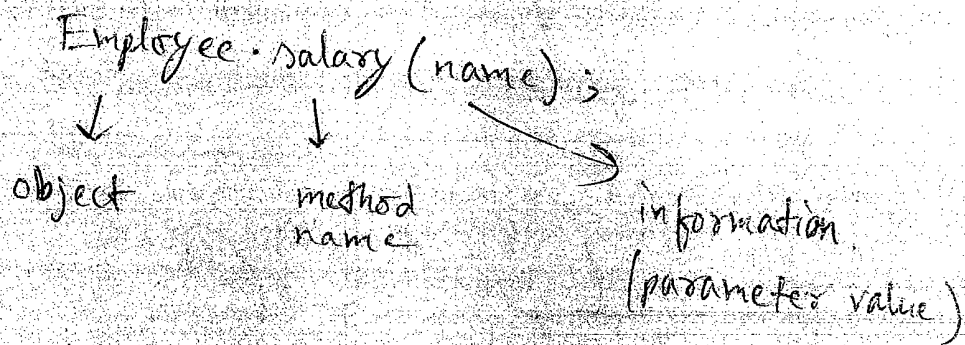 Employee.salary(name);
object
method
name
information
(parameter value)